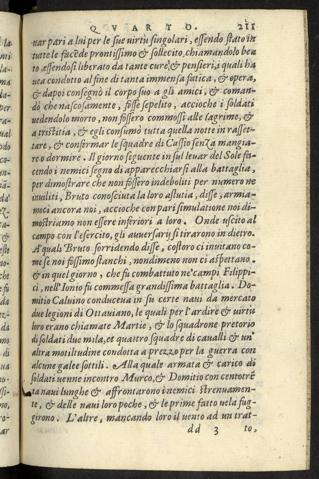 QVARTO. 211
nar pari a lui per le sue uirtu singolari, essendo stato in
tutte le facēde prontissimo & sollecito, chiamandolo bea
to essendosi liberato da tante cure, & pensieri, i quali ha
uea condotto al fine di tanta immensa fatica, & opera,
& dapoi consegnò il corpo suo a gli amici, & coman-
dò che nascosamente, fosse sepelito, accioche i soldati
uedendolo morto, non fossero commossi alle lagrime, &
a tristitia, & egli consumò tutta quella notte in rasset-
tare, & confirmar le squadre di Cassio senza mangia-
re o dormire. Il giorno seguente in sul leuar del Sole fa-
cendo i nemici segno di apparecchiarsi alla battaglia,
per dimostrare che non fossero indeboliti per numero ne
inuiliti, Bruto conosciuta la loro astutia, disse, armia-
moci ancora noi, accioche con pari simulatione noi di-
mostriamo non essere inferiori a loro. Onde uscito al
campo con l'esercito, gli auuersarij si tirarono in dietro.
A quali Bruto sorridendo disse, costoro ci inuitano co-
me se noi fossimo stanchi, nondimeno non ci aspettano.
& in quel giorno, che fu combattuto ne' campi Filippi-
ci, nell'Ionio fu commessa grandissima battaglia. Do-
mitio Caluino conduceua in su certe naui da mercato
due legioni di Ottauiano, le quali per l'ardire & uirtù
loro erano chiamate Martie, & lo squadrone pretorio
di soldati due mila, et quattro squadre di caualli & un'
altra moltitudine condotta a prezzo per la guerra con
alcune galee sottili. Alla quale armata & carico di
soldati uenne incontro Murco, & Domitio con centotrē
ta naui lunghe & affrontarono i nemici strenuamen-
te, & delle naui loro poche, & le prime fatto uela fug-
girono. L'altre, mancando loro il uento ad un trat-
dd 3 to,